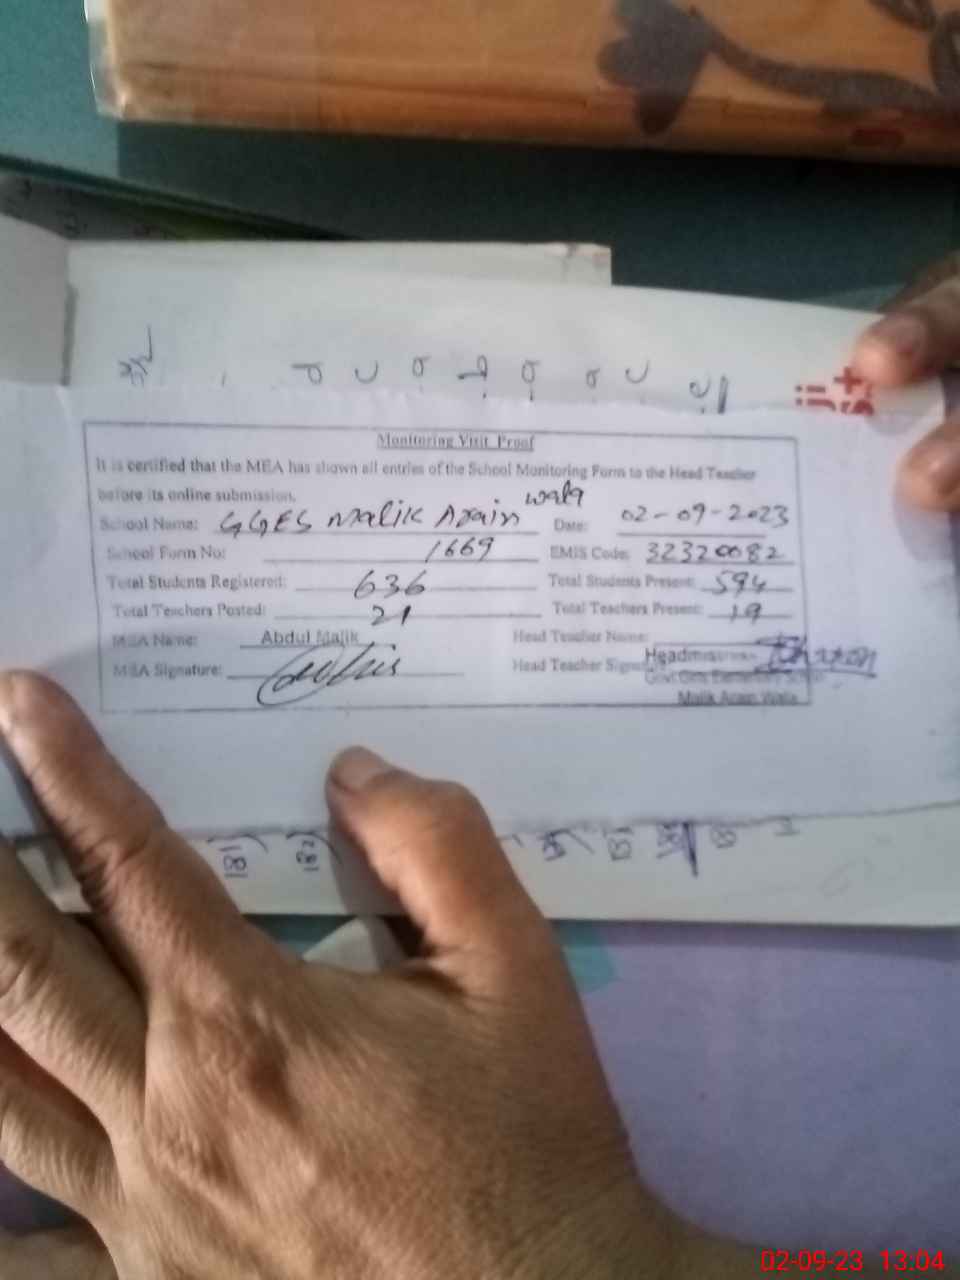 Monitoring Visit Proof
It is certified that the MEA has shown all entries of the School Monitoring Form to the Head Teacher
before its online submission.
School Name: GGES Malik Arain wala Date: 02-09-2023
School Form No: 1669 EMIS Code: 32320082
Total Students Registered: 636 Total Students Present: 594
Total Teachers Posted: 21 Total Teachers Present: 19
MEA Name: Abdul Malik Head Teacher Name:
MEA Signature: Head Teacher Signature:
Headmistress
Govt. Girls Elementary School
Malik Arain Wala
181 182
02-09-23 13:04